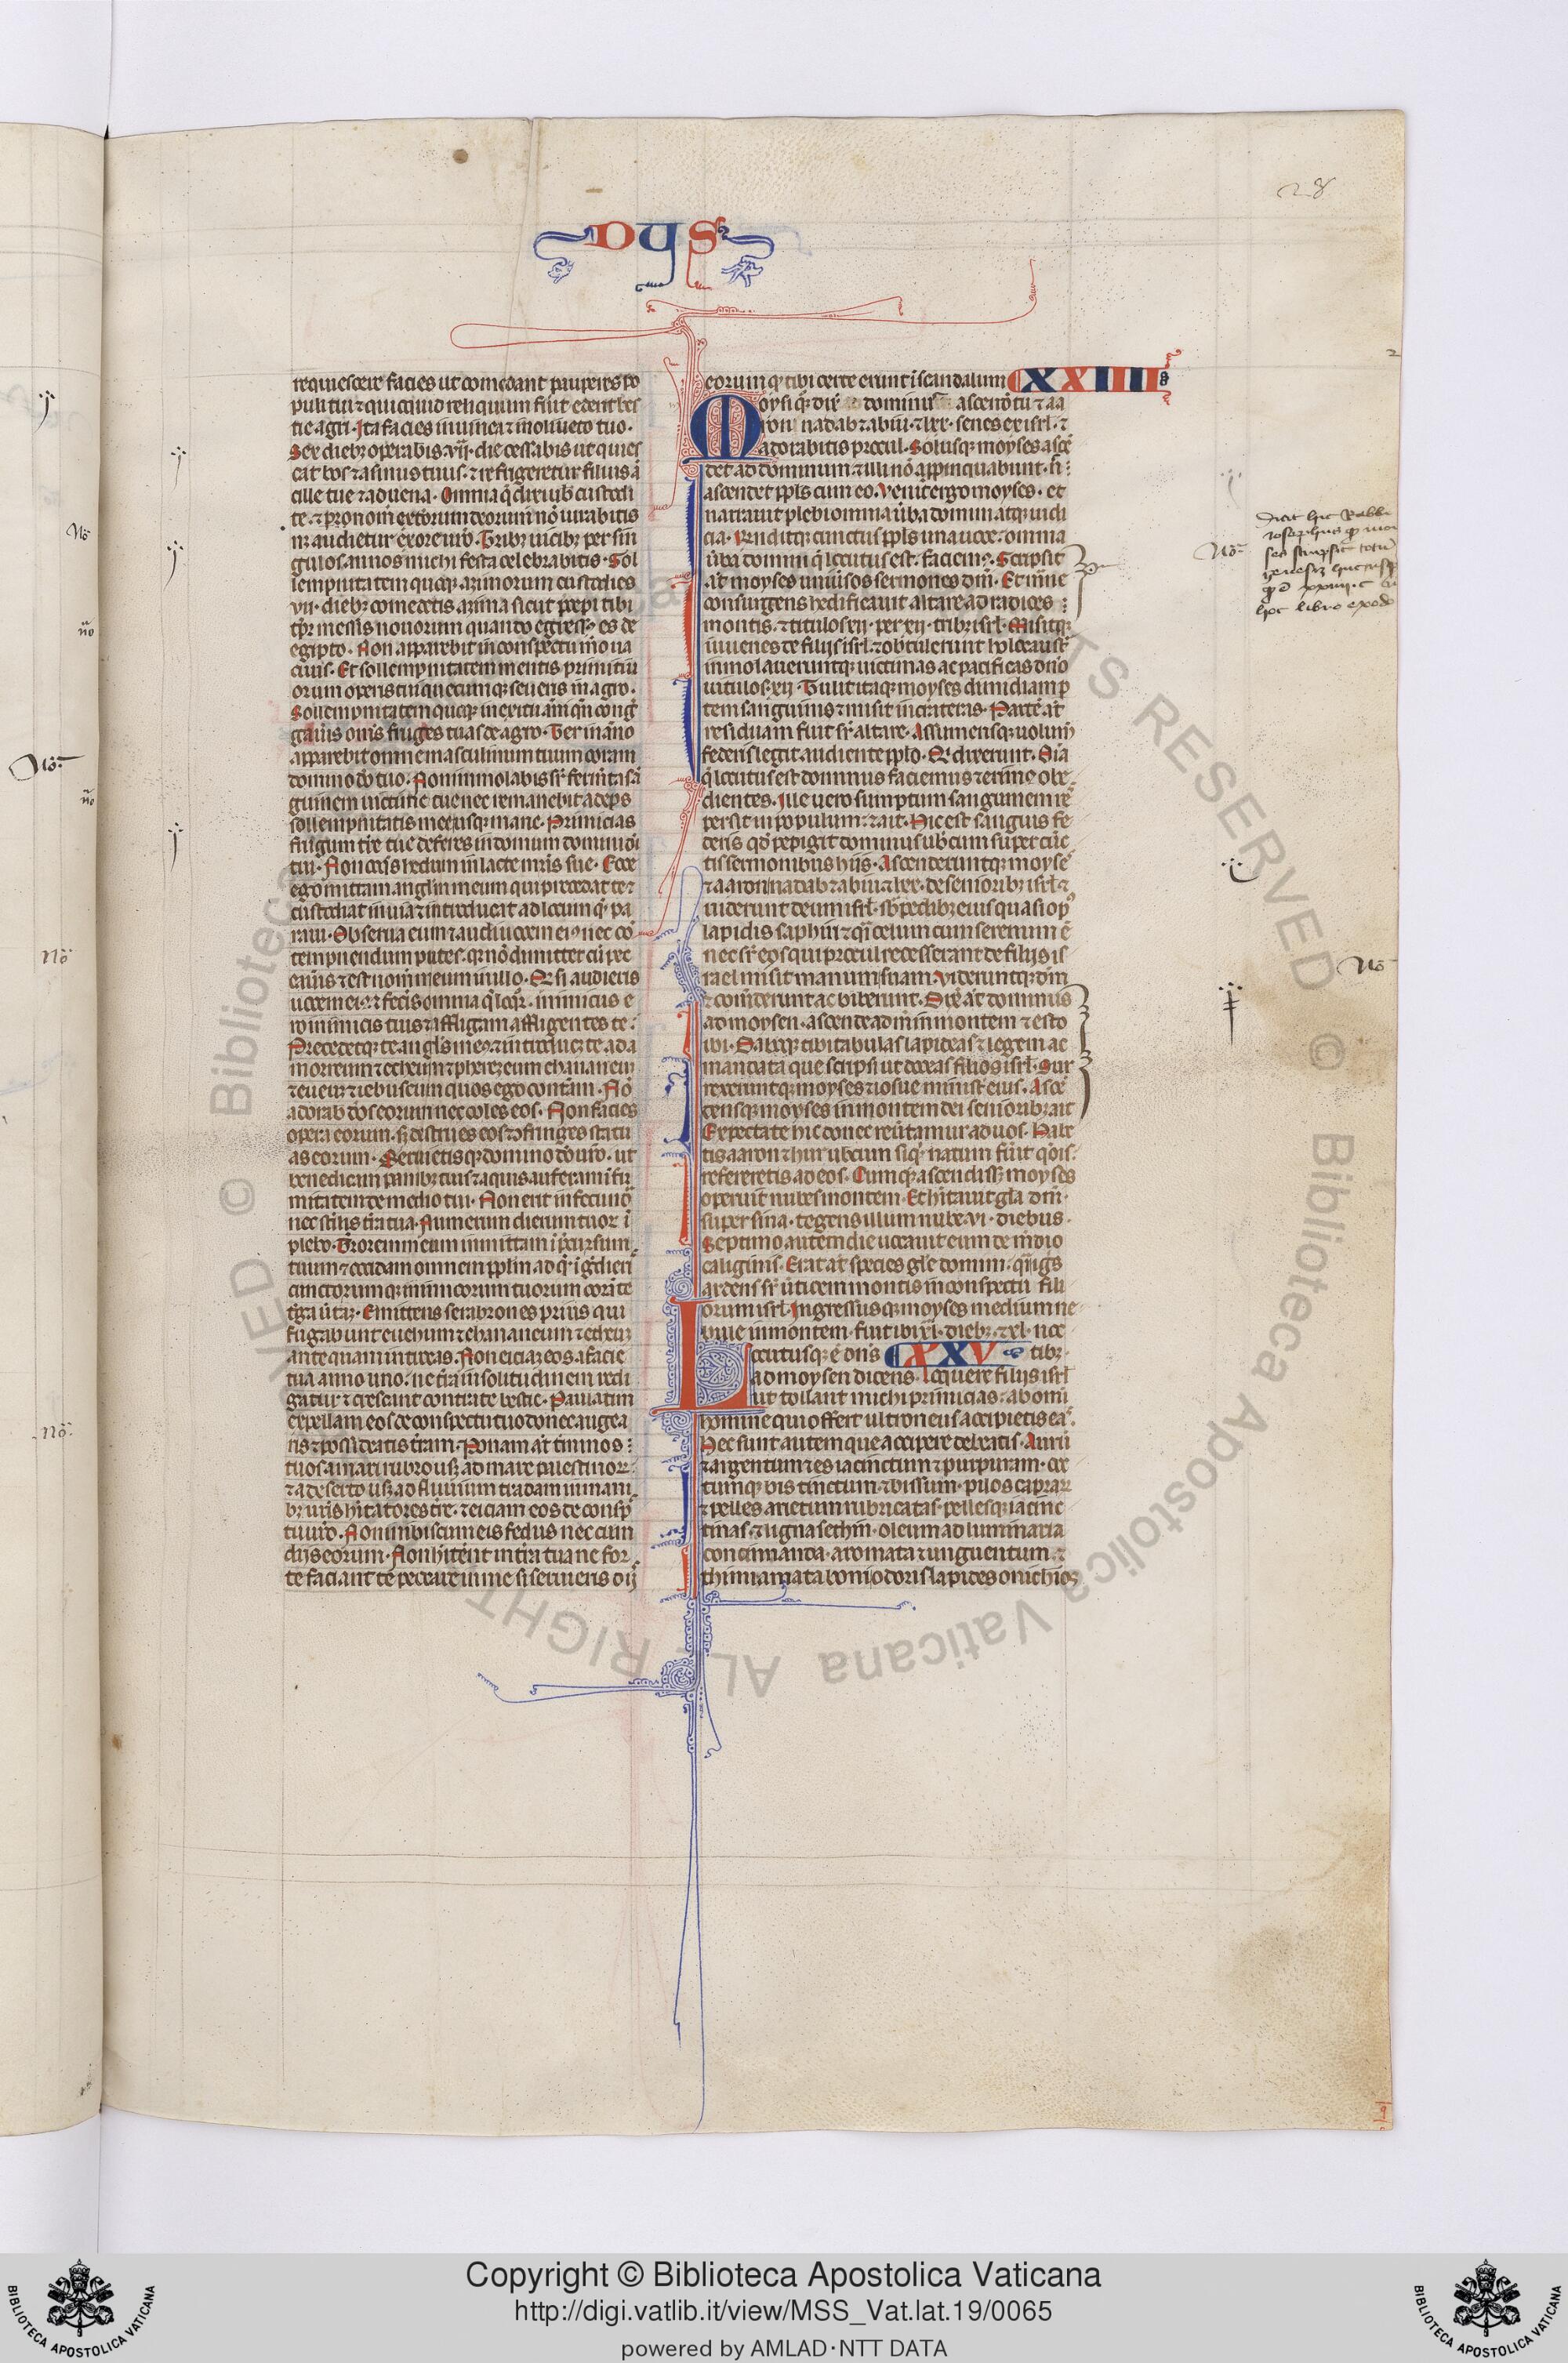 28
DYS
requiescere facies ut comedant pauperes po
puli tui ⁊ quicquid reliquum fu͛it edent bes
tie agri. Ita facies in uinea ⁊ in oliueto tuo.
Sex dieb; operabis. vij. die cessabis ut quies
cat bos ⁊ asinus tuus. ⁊ refrigeretur filius ā
cille tue ⁊ aduena. Omnia q̄ dixi uob̄ custodi
te. ⁊ p̱ nom̄ exterorum deorum nō iurabitis
nz audietur ex ore ur̄o. Trib; uicib; per sin
gulos annos michi festa celebrabitis. Sol
lempnitatem quoq; azimorum custodies
vij. dieb; comedetis azima sicut p̄cepi tibi
tp̄r mensis nouorum quando egressꝰ es de
egipto. Non apparebit in conspectu meo ua
cuus. Et sollempnitatem mensis primitiu
orum operis tui quecumq; seueris in agro.
Sollempnitatem quoq; in exitu anni qn̄ cong̱
gau͛is om̄s fruges tuas de agro. Ter in anno
apparebit omne masculinum tuum coram
domino dō tuo. Non immolabis sr̄ ferm̄tū sā
guinem uictime tue nec remanebit adeps
sollempnitatis mee usq; mane. Primicias
frugum tr̄e tue deferes in domum domini dī
tui. Non coq̄s hedum in lacte mr̄is sue. Ecce
ego mittam angl̄m meum qui precedat te ⁊
custodiat in uia ⁊ introducat ad locum qͥ pa
raui. Obserua eum ⁊ audi uocem eiꝰ nec cō
tempnendum putes. q̇ nō dimittet cū pec
cau͛is ⁊ est nom̄ meum in illo. Qd̄ si audieris
uocem eiꝰ ⁊ fec͛is omnia q̄ loq̇r. inimicus e
ro inimicis tuis ⁊ affligam affligentes te.
Precedetq; te angl̄s meꝰ ⁊ introducet te ad a
morreum ⁊ etheum ⁊ pherezeum chananeum
⁊ eueum ⁊ iebuseum quos ego cont͛am. Nō
adorab̄ deos eorum nec coles eos. Non facies
opera eorum. s; destrues eos ⁊ cōfringes statu
as eorum. Seruietisq; domino dō ur̄o. ut
benedicam panib; tuis ⁊ aquis. auferam ī fir
mitatem de medio tui. Non erit infecundā
nec st͛ilis in tr̄a tua. Numerum dierum tuorꝝ ī
plebo. Terrorem meum inmittam ī p̄cursum
tuum ⁊ occidam omnem ppl̄m ad qͥ ingredieris
cunctorumq; inimicorum tuorum corā te
t͛ga u͛tam. Emittens scrabrones prius qui
fugabunt eueum ⁊ chananeum ⁊ etheum
ante quam introeas. Non eiciam eos a facie
tua anno uno. ne tr̄a in solitudinem redi
gatur ⁊ crescant contra te bestie. Paulatim
expellam eos de conspectu tuo donec augea
ris ⁊ possideatis tr̄am. Ponam aūt t͛minos
tuos a mari rubro usq; ad mare palestinorꝝ
⁊ a deserto usq; ad fluuium. tradam in mani
b; ur̄is hītatores tr̄e. ⁊ eiciam eos de consp̄c
tu ur̄o. Non inibis cum eis fedus nec cum
dijs eorum. Non hītent in tr̄a tua ne for
te faciant te peccare in me si seruieris dijs
eorum q̇ tibi certe erunt ī scandalum XXIIII
Moysi q̇q; dix̄ dominus ascende tu ⁊ aa
ron nadab ⁊ abiu. ⁊ lxx. senes ex isrl̄. ⁊
adorabitis procul. Solusq; moyses ascē
det ad dominum ⁊ illi nō app̄inquabunt. n̄
ascendet ppl̄s cum eo. Venit ergo moyses. et
narrauit plebi omnia u͛ba domini atq; iudi
cia. Rn̄ditq; cunctus ppl̄s una uoce. omnia
u͛ba domini q̄ locutus est. faciemꝰ. Scripsit
aūt moyses uniu͛sos sermones dn̄i. Et mane
consurgens hedificauit altare ad radices
montis. ⁊ titulos xij. per xij. trib; isrl̄. Misitq;
iuuenes de filijs isrl̄. ⁊ obtulerunt holocaust̄
inmolaueruntq; uictimas ac pacificas dn̄o
uitulos xij. Tulit itaq; moyses dimidiam p̱
tem sanguinis ⁊ misit in crateras. Partē aūt
residuam fudit sr̄ altare. Assumensq; uolumē
federis legit audiente ppl̄o. Qi dixerunt. Om̄a
q̄ locutus est dominus faciemus ⁊ erimꝰ obe
dientes. Ille uero sumptum sanguinem re
spersit in populum. ⁊ ait. Hic est sanguis fe
deris qd̄ pepigit dominus uobiscum super cunc
tis sermonibus hijs. Ascenderuntq; moyses
⁊ aaron nadab ⁊ abiu ⁊ lxx. de seniorib; isrl̄ ⁊
uiderunt deum isrl̄. sb̄ pedib; eius quasi opꝰ
lapidis saphiri ⁊ q̇i celum cum serenum ē
nec sr̄ eos qui procul recesserant de filijs is
rael misit manum suam. Videruntq; dm̄
⁊ comederunt ac biberunt. Dix̄ aūt dominus
ad moysen. ascende ad me in montem ⁊ esto
ibi. Daboq; tibi tabulas lapideas ⁊ legem ac
mandata que scripsi ut doceas filios isrl̄. Sur
rexeruntq; moyses ⁊ iosue minist͛ eius. Ascē
densq; moyses in montem dei seniorib; ait
Expectate hic donec reu͛tamur ad uos. Habe
tis aaron ⁊ hur uobiscum siq̇ natum fu͛it q̄ōis
refereretis ad eos. Cumq; ascendissꝫ moyses
operuit nubes montem. Et hītauit gl̄a dn̄i.
super sina. tegens illum nube. vi. diebus.
Septimo autem die uocauit eum de medio
caliginis. Erat aūt species gl̄e domini. q̇i ignis
ardens sr̄ u͛ticem montis in conspectu fili
orum isrl̄. Ingressusq; moyses medium ne
bule in montem. fuit ibi xl. dieb; ⁊ xl. noc
Locutusq; ē dn̄s XXV tib;.
ad moysen dicens. Loquere filijs isrl̄
ut tollant michi primicias. ab omi
homine qui offert ultroneus accipietis eas.
Hec sunt autem que accipere debeatis. Aurū
⁊ argentum ⁊ es iacinctum ⁊ purpuram. coc
cumq; bis tinctum. ⁊ bissum. pilos caprarꝝ
⁊ pelles arietum rubricatas. pellesq; iacinc
tinas. ⁊ ligna sethin. oleum ad luminaria
concinnanda. aromata ⁊ unguentum. ⁊
thimiamata boni odoris. lapides onichios
No
Dicit hic Rabbi
Josephus
Copyright © Biblioteca Apostolica Vaticana
http://digi.vatlib.it/view/MSS_Vat.lat.19/0065
powered by AMLAD·NTT DATA
BIBLIOTECA APOSTOLICA VATICANA
BIBLIOTECA APOSTOLICA VATICANA